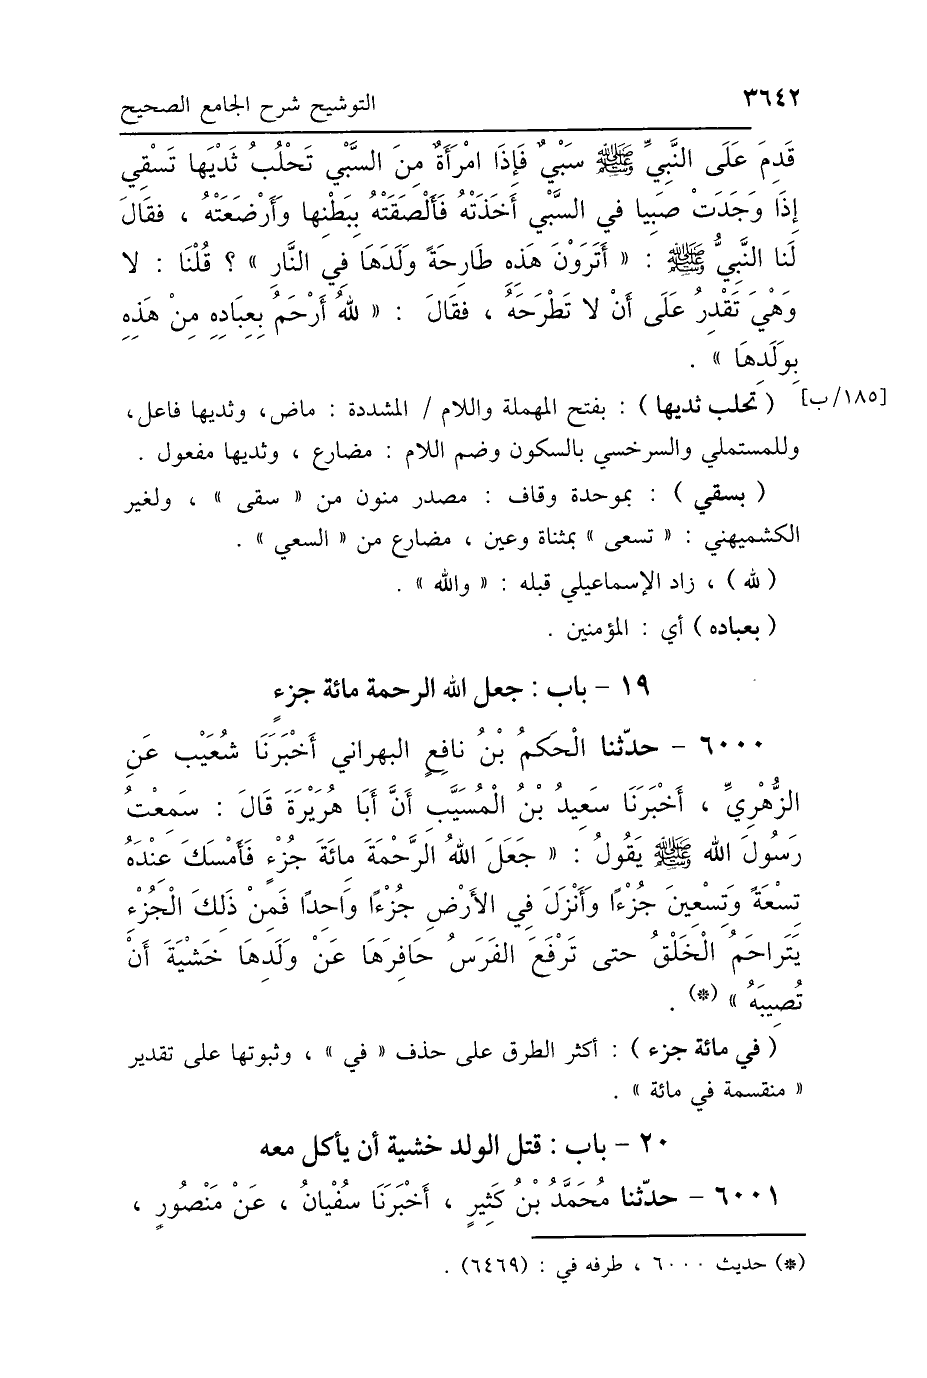 ٣٦٤٢ التوشيح شرح الجامع الصحيح
قَدِمَ عَلَى النَّبِيِّ ﷺ سَبْيٌ فَإِذَا امْرَأَةٌ مِنَ السَّبْيِ تَحْلُبُ ثَدْيَها تَسْقِي
إِذَا وَجَدَتْ صَبِيا في السَّبْيِ أَخَذَتْهُ فَأَلْصَقَتْهُ بِبَطْنِها وَأَرْضَعَتْهُ ، فقَالَ
لَنا النَّبِيُّ ﷺ : « أَتَرَوْنَ هَذِهِ طَارِحَةً وَلَدَهَا فِي النَّارِ » ؟ قُلْنَا : لا
وَهْيَ تَقْدِرُ عَلَى أَنْ لا تَطْرَحَهُ ، فقَالَ : « للهُ أَرْحَمُ بِعِبادِهِ مِنْ هَذِهِ
بِولَدِهَا » .
[١٨٥/ب] ( تحلب ثديها ) : بفتح المهملة واللام / المشددة : ماض، وثديها فاعل،
وللمستملي والسرخسي بالسكون وضم اللام : مضارع ، وثديها مفعول .
( بسقي ) : بموحدة وقاف : مصدر منون من « سقى » ، ولغير
الكشميهني : « تسعى » بمثناة وعين ، مضارع من « السعي » .
( لله ) ، زاد الإسماعيلي قبله : « والله » .
( بعباده ) أي : المؤمنين .
١٩ - باب : جعل الله الرحمة مائة جزءٍ
٦٠٠٠ - حدّثنا الْحَكَمُ بْنُ نافِعٍ البهراني أَخْبَرَنَا شُعَيْب عَنِ
الزُّهْرِيِّ ، أَخْبَرَنَا سَعِيدُ بْنُ الْمُسَيَّبِ أَنَّ أَبَا هُرَيْرَةَ قَالَ : سَمِعْتُ
رَسُولَ الله ﷺ يَقُولُ : « جَعَلَ اللهُ الرَّحْمَةَ مائَةَ جُزْءٍ فَأَمْسَكَ عِنْدَهُ
تِسْعَةً وَتِسْعِينَ جُزْءًا وَأَنْزَلَ فِي الأَرْضِ جُزْءًا وَاحِدًا فَمِنْ ذَلِكَ الْجُزْءِ
يَتَراحَمُ الْخَلْقُ حتى تَرْفَعَ الفَرَسُ حَافِرَهَا عَنْ وَلَدِهَا خَشْيَةَ أَنْ
تُصِيبَهُ » (*) .
( في مائة جزء ) : أكثر الطرق على حذف « في » ، وثبوتها على تقدير
« منقسمة في مائة » .
٢٠ - باب : قتل الولد خشية أن يأكل معه
٦٠٠١ - حدّثنا مُحَمَّدُ بْنُ كَثِيرٍ ، أَخْبَرَنَا سُفْيانُ ، عَنْ مَنْصُورٍ ،
(*) حديث ٦٠٠٠ ، طرفه في : (٦٤٦٩) .